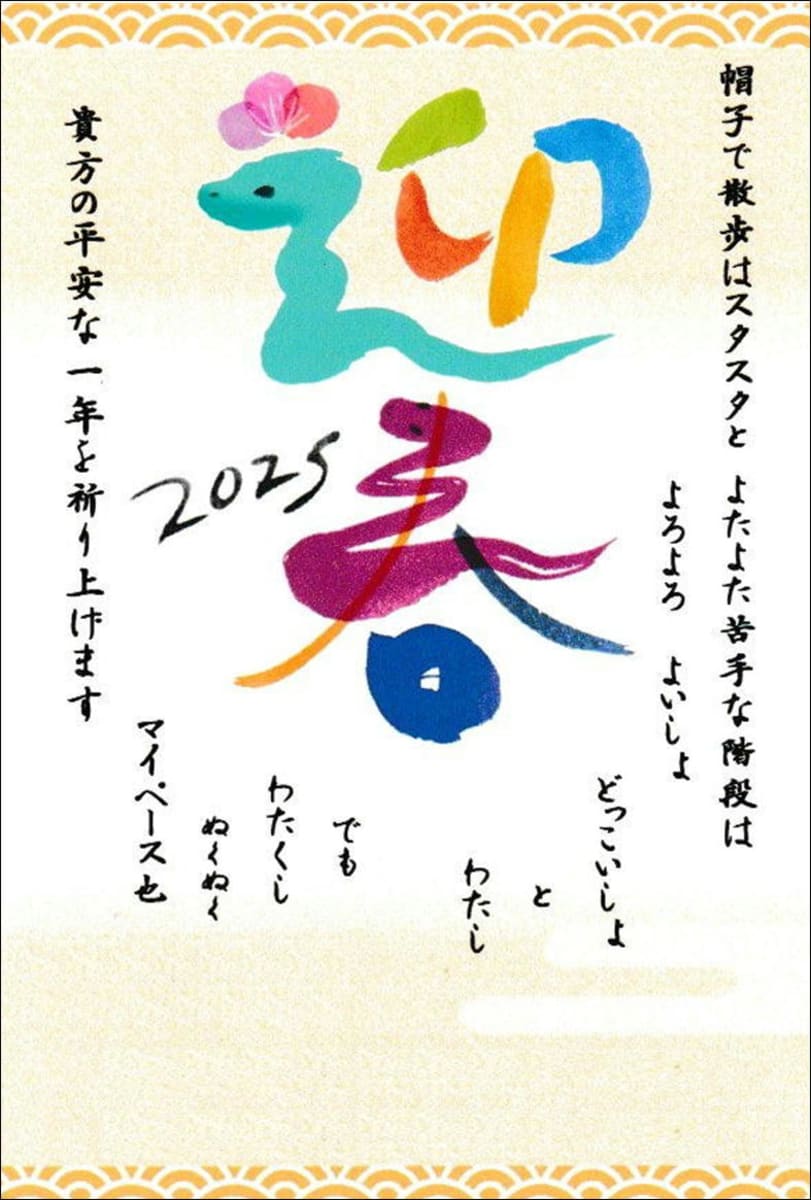 帽子で散歩はスタスタと よたよた苦手な階段は
よろよろ よいしょ
どっこいしょ
と
わたし
迎春
2025
でも
わたくし
ぬくぬく
マイペース也
貴方の平安な一年を祈り上げます